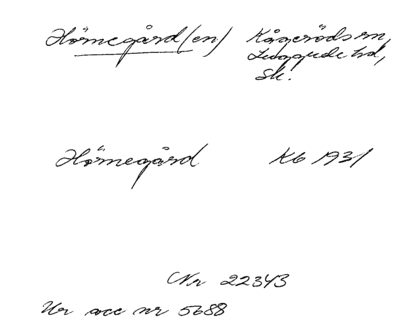 Hörnegård(en) Kågeröds sn,
Luggude hd,
Sk.
Hörnegård Kb 1931
Nr 22343
Ur acc nr 5688